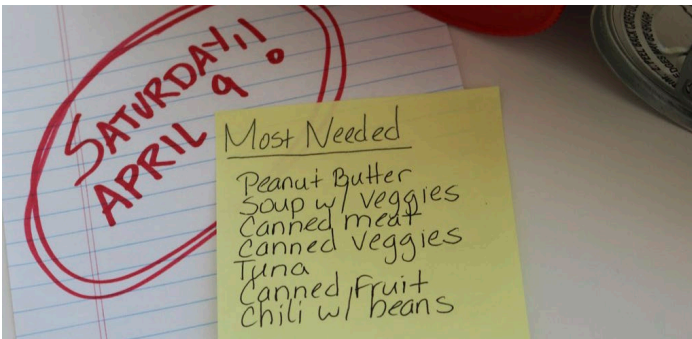 SATURDAY!!
APRIL 9!
Most Needed
Peanut Butter
Soup w/ veggies
Canned meat
Canned veggies
Tuna
Canned Fruit
Chili w/ beans